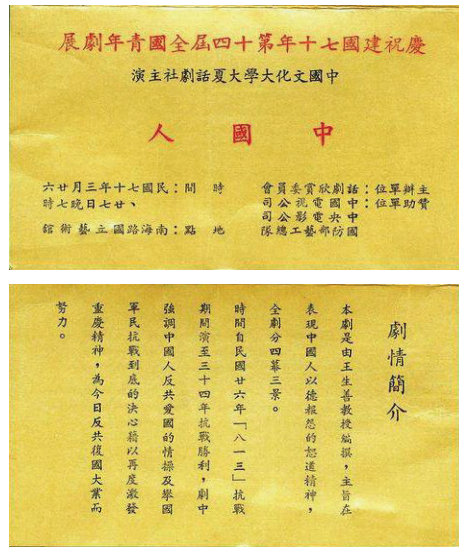 慶祝建國七十年第十四屆全國青年劇展
中國文化大學大夏話劇社主演
中國人
主辦單位：話劇欣賞委員會
贊助單位：中國電視公司
中央電影公司
國防部藝工總隊
時間：民國七十年三月廿六
、廿七日晚七時
地點：南海路國立藝術館
劇情簡介
本劇是由王生善教授編撰，主旨在
表現中國人以德報怨的恕道精神，
全劇分四幕三景。
時間自民國廿六年「八一三」抗戰
期間演至三十四年抗戰勝利，劇中
強調中國人反共愛國的情操及舉國
軍民抗戰到底的決心藉以再度激發
重慶精神，為今日反共復國大業而
努力。